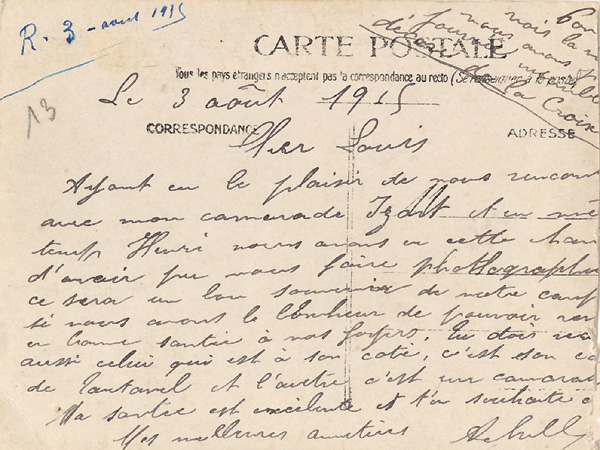 R. 3 - août 1915
13
CARTE POSTALE
Tous les pays étrangers n'acceptent pas la correspondance au recto (Se renseigner à la poste)
Le 3 août 1915
CORRESPONDANCE
ADRESSE
Cher Louis
Ayant eu le plaisir de nous rencon
avec mon camarade Izart et en mê
temps Henri nous avons eu cette chan
d'avoir pu nous faire photographi
ce sera un bon souvenir de notre camp
si nous avons le bonheur de pouvoir ren
en bonne santée à nos foyers. Tu dois
aussi celui qui est à son coté, c'est son
de Tautavel et l'autre c'est un camara
Ma santée est excelente et t'en souhaite
Mes meilleures amitiés Achille
bon
mois la
nous avons
fourni
la Croix